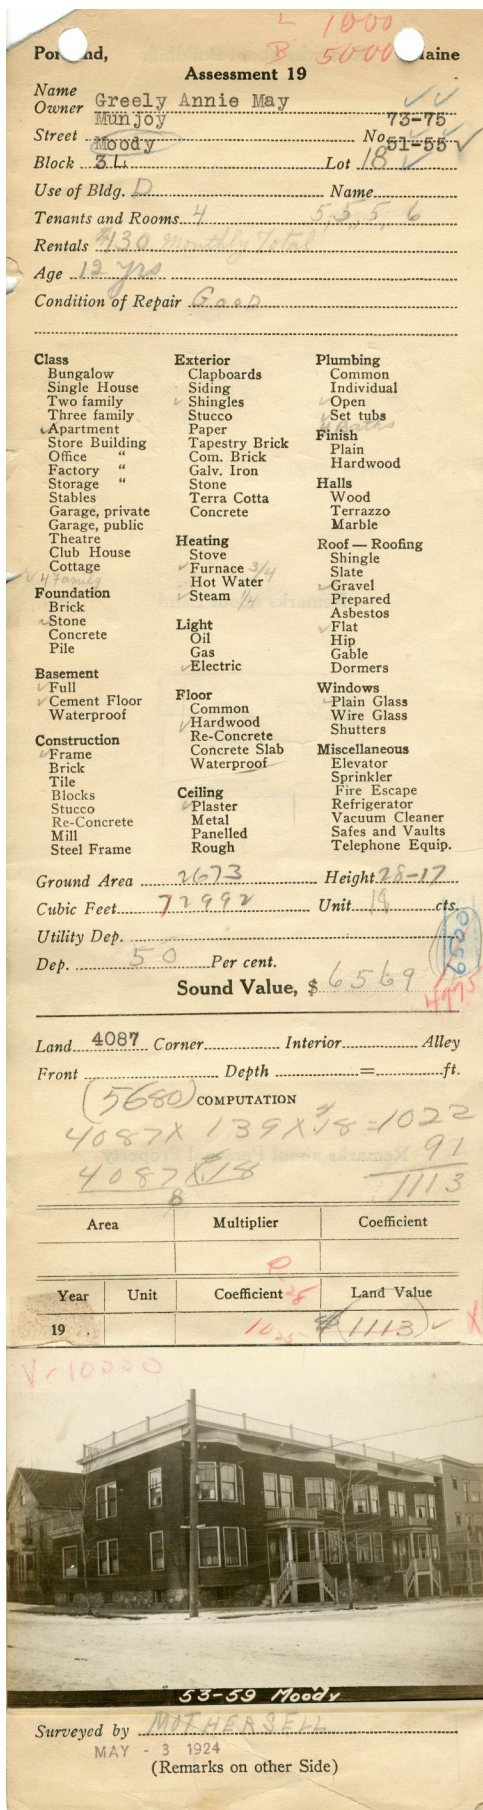 L 1000
B 5000
Portland, Maine
Assessment 19
Name
Owner Greely Annie May
Munjoy 73-75
Street Moody No. 51-55
Block 3L Lot 18
Use of Bldg. D Name
Tenants and Rooms 4 5, 5, 5, 6
Rentals $130 monthly Total
Age 12 yrs
Condition of Repair Good
Class
Bungalow
Single House
Two family
Three family
Apartment
Store Building
Office "
Factory "
Storage "
Stables
Garage, private
Garage, public
Theatre
Club House
Cottage
4 Family
Foundation
Brick
Stone
Concrete
Pile
Basement
Full
Cement Floor
Waterproof
Construction
Frame
Brick
Tile
Blocks
Stucco
Re-Concrete
Mill
Steel Frame
Exterior
Clapboards
Siding
Shingles
Stucco
Paper
Tapestry Brick
Com. Brick
Galv. Iron
Stone
Terra Cotta
Concrete
Heating
Stove
Furnace 3/4
Hot Water
Steam 1/4
Light
Oil
Gas
Electric
Floor
Common
Hardwood
Re-Concrete
Concrete Slab
Waterproof
Ceiling
Plaster
Metal
Panelled
Rough
Plumbing
Common
Individual
Open
Set tubs
4 Baths
Finish
Plain
Hardwood
Halls
Wood
Terrazzo
Marble
Roof — Roofing
Shingle
Slate
Gravel
Prepared
Asbestos
Flat
Hip
Gable
Dormers
Windows
Plain Glass
Wire Glass
Shutters
Miscellaneous
Elevator
Sprinkler
Fire Escape
Refrigerator
Vacuum Cleaner
Safes and Vaults
Telephone Equip.
Ground Area 2673 Height 28-17
Cubic Feet 72992 Unit 18 cts.
Utility Dep.
6500
Dep. 50 Per cent.
Sound Value, $ 6569
4975
Land 4087 Corner Interior Alley
Front Depth = ft.
(5680) COMPUTATION
4087 X 139 X .18 = 1022
4087 X .18 91
8 1113
Area Multiplier Coefficient
R
Year Unit Coefficient 25 Land Value
19 10 25 $ (1113) X
V-10000
53-59 Moody
Surveyed by MOTHERSELL
MAY - 3 1924
(Remarks on other Side)